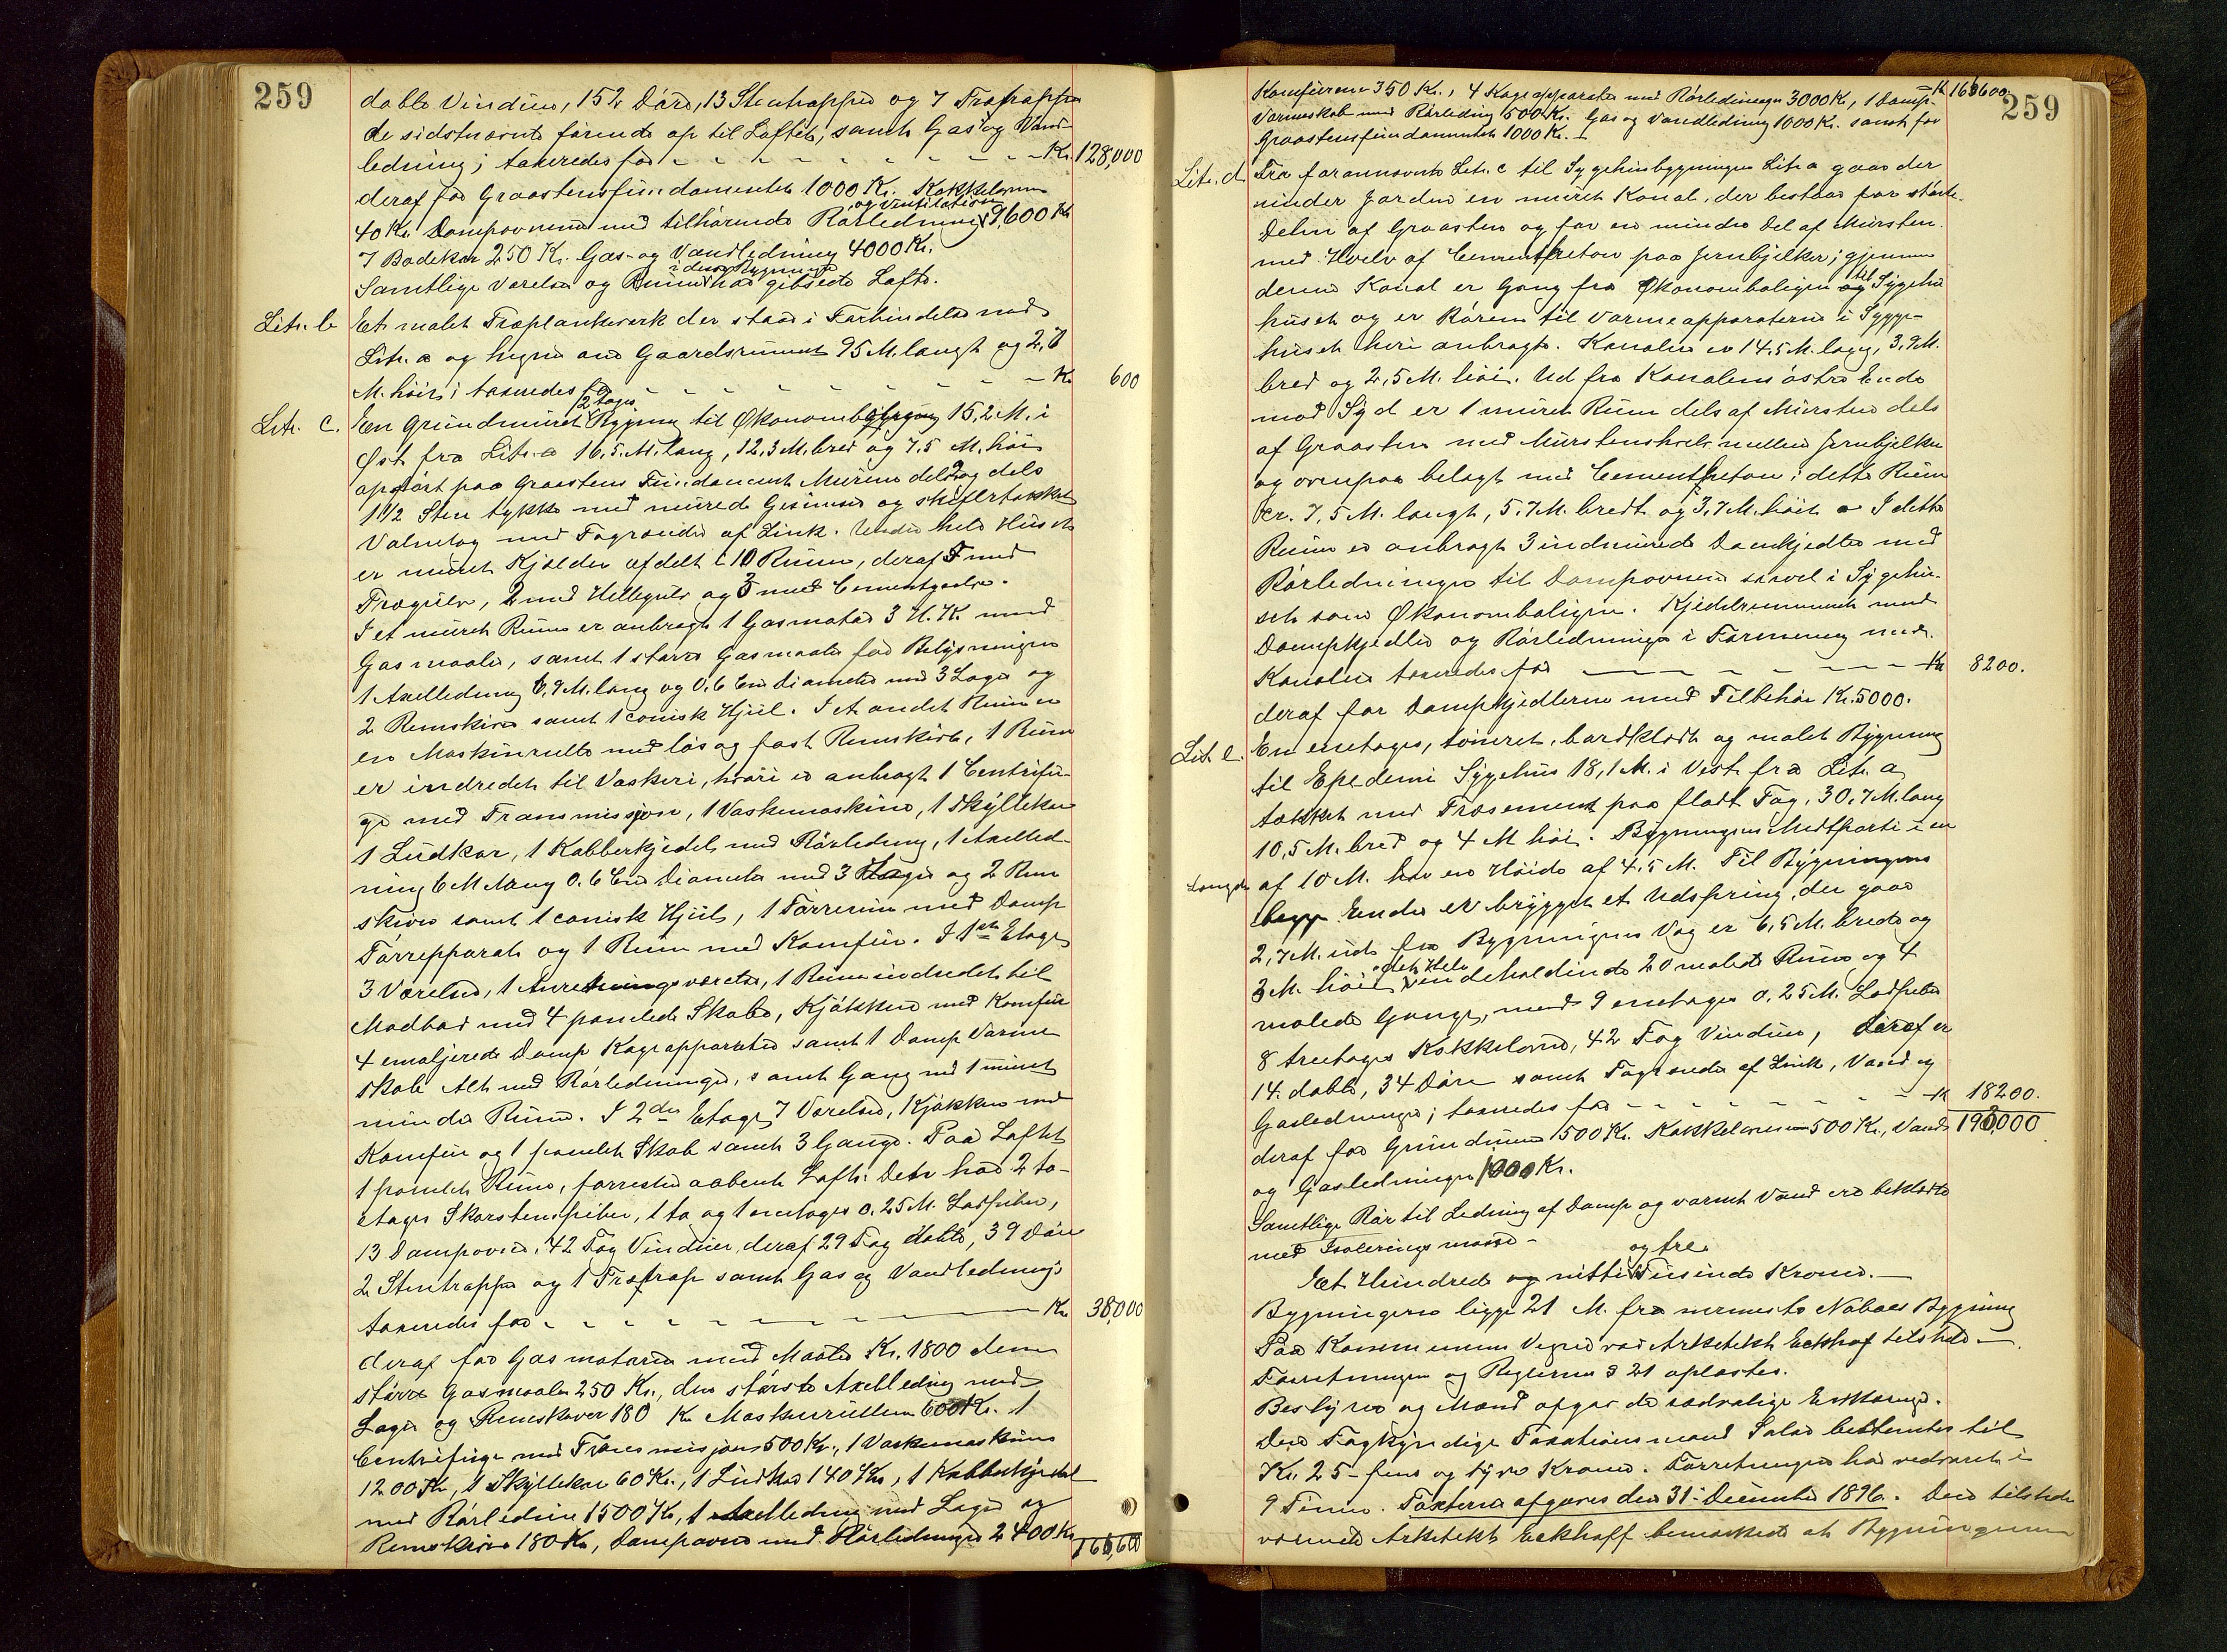 259
doble Vinduer, 152 Døre, 13 Stentrapper og 7 Trætrapper
de sidstnævnte førende op til Loftet, samt Gas og Vand-
ledning; taxeredes for - - - - - - - - - - Kr. 128,000
deraf for Graastensfundamentet 1000 Kr. Kakkelovne
og Ventilation
40 Kr. Dampovnene med tilhørende Rørledning 9,600 Kr
7 Badekar 250 Kr. Gas- og Vandledning 4000 Kr.
i denne Bygning
Samtlige Værelser og Rum har gibsede Lofte.
Litr. b Et malet Træplankeverk der staar i Forbindelse med
Litr. a og hegner om Gaardsrummet 95 M. langt og 2,8
M. høit; taxeredes for - - - - - - - - - Kr 600
2 Etages
Litr. c. En grundmuret Bygning til Økonombolig 15,2 M. i
Øst fra Litr. a 16,5 M. lang, 12,3 M. bred og 7,5 M. høi
opført paa Graastens Fundament Murene dels 2 og dels
1 1/2 Sten tykke med murede Gesimser og skifertækket
Valmtag med Tagrender af Zink. Under hele Huset
er muret Kjælder afdelt i 10 Rum, deraf 5 med
Trægulv, 2 med Hellegulv og 3 med Cementgulv.
I et muret Rum er anbragt 1 Gasmotor 3 H.K. med
Gasmaaler, samt 1 større Gasmaaler for Belysningen
1 Axelledning 6,9 M. lang og 0.6 Cm Diameter med 3 Lager og
2 Remskiver samt 1 conisk Hjul. I et andet Rum er
en Maskinrulle med løs og fast Remskive, 1 Rum
er indredet til Vaskeri, hvori er anbragt 1 Centrifu-
ge med Transmissjon, 1 Vaskemaskine, 1 Skyllekar
1 Ludkar, 1 Kobberkjedel med Rørledning, 1 Axelled-
ning 6 M lang 0.6 Cm Diameter med 3 Lager og 2 Rem
skiver samt 1 conisk Hjul, 1 Tørrerum med Damp
Tørrepparat og 1 Rum med Komfur. I 1ste Etage
3 Værelser, 1 Anretningsværelse, 1 Rum indredet til
Madbod med 4 panelede Skabe, Kjøkken med Komfur
4 emaljerede Damp Kogeapparater samt 1 Damp Varme
skab Alt med Rørledninger, samt Gang med 1 muret
mindre Rum. I 2den Etage 7 Værelser, Kjøkken med
Komfur og 1 panelet Skab samt 3 Gange. Paa Loftet
1 panelet Rum, forresten aabent Loft. Der har 2 to-
etages Skorstenspiber, 1 to og 1 enetages 0.25 M. Lodpiber,
13 Dampovne, 42 Fag Vinduer, deraf 29 Fag doble, 39 Døre
2 Stentrapper og 1 Trætrap samt Gas og Vandledning;
taxeredes for - - - - - - - Kr 38,000
deraf for Gasmotoren med Maaler Kr. 1800 den
større Gasmaaler 250 Kr., den største Axelledning med
Lager og Remskiver 180 Kr Maskinrullen 600 Kr. 1
Centrifuge med Transmisjon 500 Kr., 1 Vaskemaskine
1200 Kr, 1 Skyllekar 60 Kr., 1 Ludkar 140 Kr, 1 Kobberkjedel
med Rørledning 1500 Kr, 1 Axelledning med Lager og
Remskiver 180 Kr, Dampovne med Rørledninger 2400 Kr 166,600
259
Komfurene 350 Kr., 4 Kogeapparater med Rørledninger 3000 Kr, 1 Damp- Kr 166600
varmeskab med Rørledning 500 Kr. Gas og Vandledning 1000 Kr. samt for
Graastensfundamentet 1000 Kr.
Litr. d Fra forannævnte Litr. c til Sygehusbygningen Litr a gaar der
under Jorden en muret Kanal, der bestaar for større-
Delen af Graasten og for en mindre Del af Mursten
med Hvelv af Cementbeton paa Jernbjelker; gjennem
denne Kanal er Gang fra Økonomboligen til Syge-
huset og er Rørene til Varmeapparaterne i Syge-
huset heri anbragt. Kanalen er 14,5 M. lang, 3,9 M.
bred og 2,5 M. høi. Ud fra Kanalens østre Ende
mod Syd er 1 muret Rum dels af Mursten dels
af Graasten med Murstenshvelv mellem Jernbjelker
og ovenpaa belagt med Cementbeton; dette Rum
er 7,5 M. langt, 5,7 M. bredt og 3,7 M. høit. I dette
Rum er anbragt 3 indmurede Dampkjedler med
Rørledninger til Dampovnene saavel i Sygehu-
set som Økonomboligen. Kjedelrummet med
Dampkjedler og Rørledninger i Forening med
Kanalen taxeredes for - - - - - - - Kr 8200.
deraf for Dampkjedlerne med Tilbehør Kr. 5000.
Litr e. En enetages, tømret, bordklædt og malet Bygning
til Epedemi Sygehus 18,1 M. i Vest fra Litr. a
tækket med Træsement paa fladt Tag, 30,7 M. lang
10,5 M. bred og 4 M høi. Bygningens Midtparti i en
Længde af 10 M. har en Høide af 4,5 M. Til Bygningens
begge Ender er bygget et Udspring, der gaar
2,7 M. ud fra Bygningens Væg er 6,5 M. brede og
det Hele
3 M. høie indeholdende 20 malede Rum og 4
malede Gange, med 9 enetages 0,25 M. Lodpiber
8 treetages Kakkelovne, 42 Fag Vinduer, deraf er
14 doble, 34 Døre samt Tagrender af Zink, Vand og
Gasledninger; taxeredes for - - - - - - - Kr 18200.
deraf for Grundmur 1500 Kr. Kakkelovnene 500 Kr., Vand- 193,000
og Gasledninger 1000 Kr.
Samtlige Rør til Ledning af Damp og varmt Vand ere beklædte
med Isolerings masse -
og tre
Et Hundrede og nitti Tusinde Kroner. -
Bygningerne ligge 21 M. fra nærmeste Naboes Bygning
Paa Kommunens Vegne var Arkitekt Eckhoff tilstede -
Forretningen og Reglernes § 21 oplæstes.
Bestyrer og Mænd afgav de sædvanlige Erklæringer.
Den Fagkyndige Taxationsmand Salær bestemtes til
Kr. 25 - fem og tyve Kroner. Forretningen har vedvaret i
9 Timer. Taxterne afgaves den 31. December 1896. Den tilstede
værende Arkitekt Eckhoff bemærkede at Bygningerne